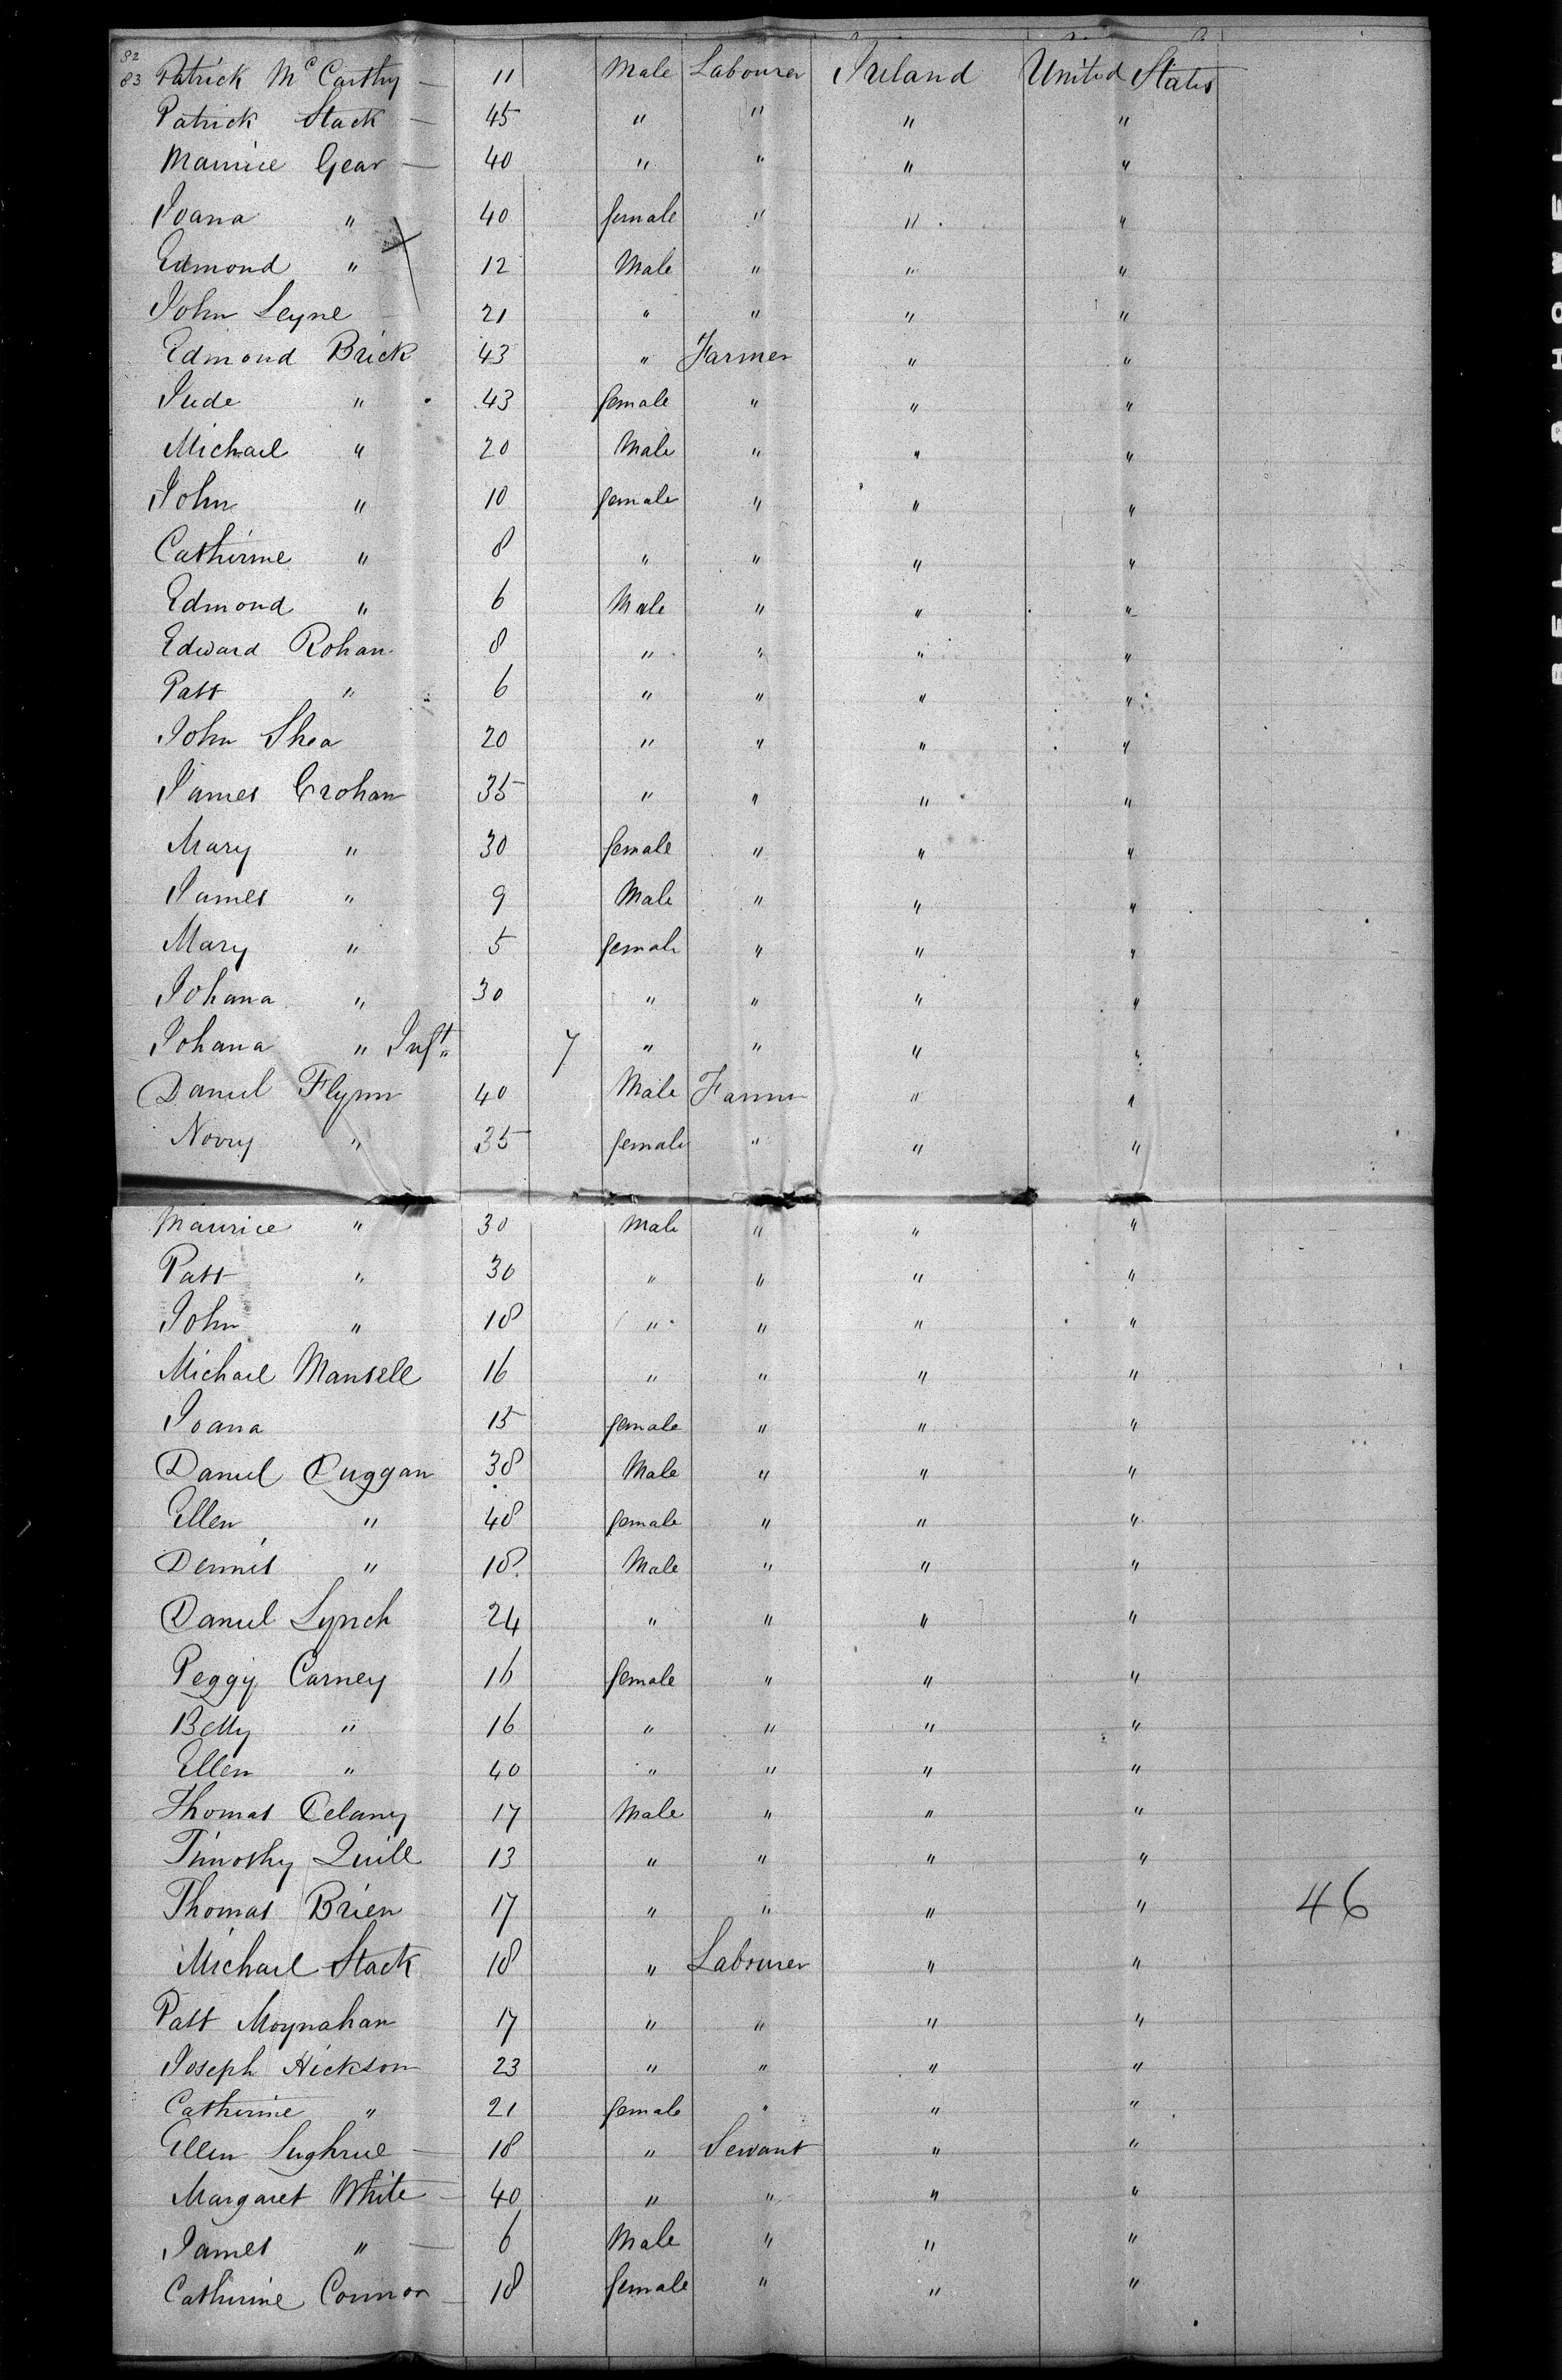 82
83 Patrick McCarthy — 11 Male Labourer Ireland United States
Patrick Stack — 45 " " " "
Maurice Gear — 40 " " " "
Joana " 40 female " " "
Edmond " 12 Male " " "
John Leyne 21 " " " "
Edmond Brick 43 " Farmer " "
Jude " 43 female " " "
Michael " 20 Male " " "
John " 10 female " " "
Catherine " 8 " " " "
Edmond " 6 Male " " "
Edward Rohan 8 " " " "
Patt " 6 " " " "
John Shea 20 " " " "
James Crohan 35 " " " "
Mary " 30 female " " "
James " 9 Male " " "
Mary " 5 female " " "
Johana " 30 " " " "
Johana " Inft 7 " " " "
Daniel Flynn 40 Male Farmer " "
Norry " 35 female " " "
Maurice " 30 Male " " "
Patt " 30 " " " "
John " 18 " " " "
Michael Mansell 16 " " " "
Joana 15 female " " "
Daniel Duggan 38 Male " " "
Ellen " 48 female " " "
Dennis " 18 Male " " "
Daniel Lynch 24 " " " "
Peggy Carney 16 female " " "
Betty " 16 " " " "
Ellen " 40 " " " "
Thomas Delany 17 Male " " "
Timothy Quill 13 " " " "
Thomas Brien 17 " " " " 46
Michael Stack 18 " Labourer " "
Patt Moynahan 17 " " " "
Joseph Hickson 23 " " " "
Catherine " 21 female " " "
Ellen Lughrue — 18 " Servant " "
Margaret White — 40 " " " "
James " — 6 Male " " "
Catherine Connor — 18 female " " "